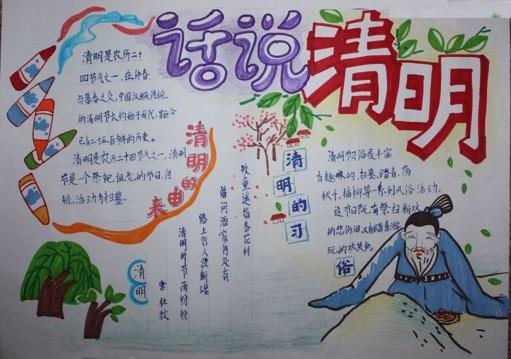 话说清明
清明是农历二十
四节气之一,在仲春
与暮春之交,中国汉族传统
的清明节大约始于周代,距今
已有二千五百多年的历史。
清明是农历二十四节气之一,清明
节是一个祭祀祖先的节日,传
统活动为扫墓。
清明的由来
清明
唐 杜牧
清明时节雨纷纷
路上行人欲断魂
借问酒家何处有
牧童遥指杏花村
清明的习俗
清明节的习俗是丰富
有趣味的,扫墓,踏青,荡
秋千,插柳等一系列风俗活动。
这节日既有祭扫新坟
的悲伤泪,又有踏青游
玩的欢笑声。